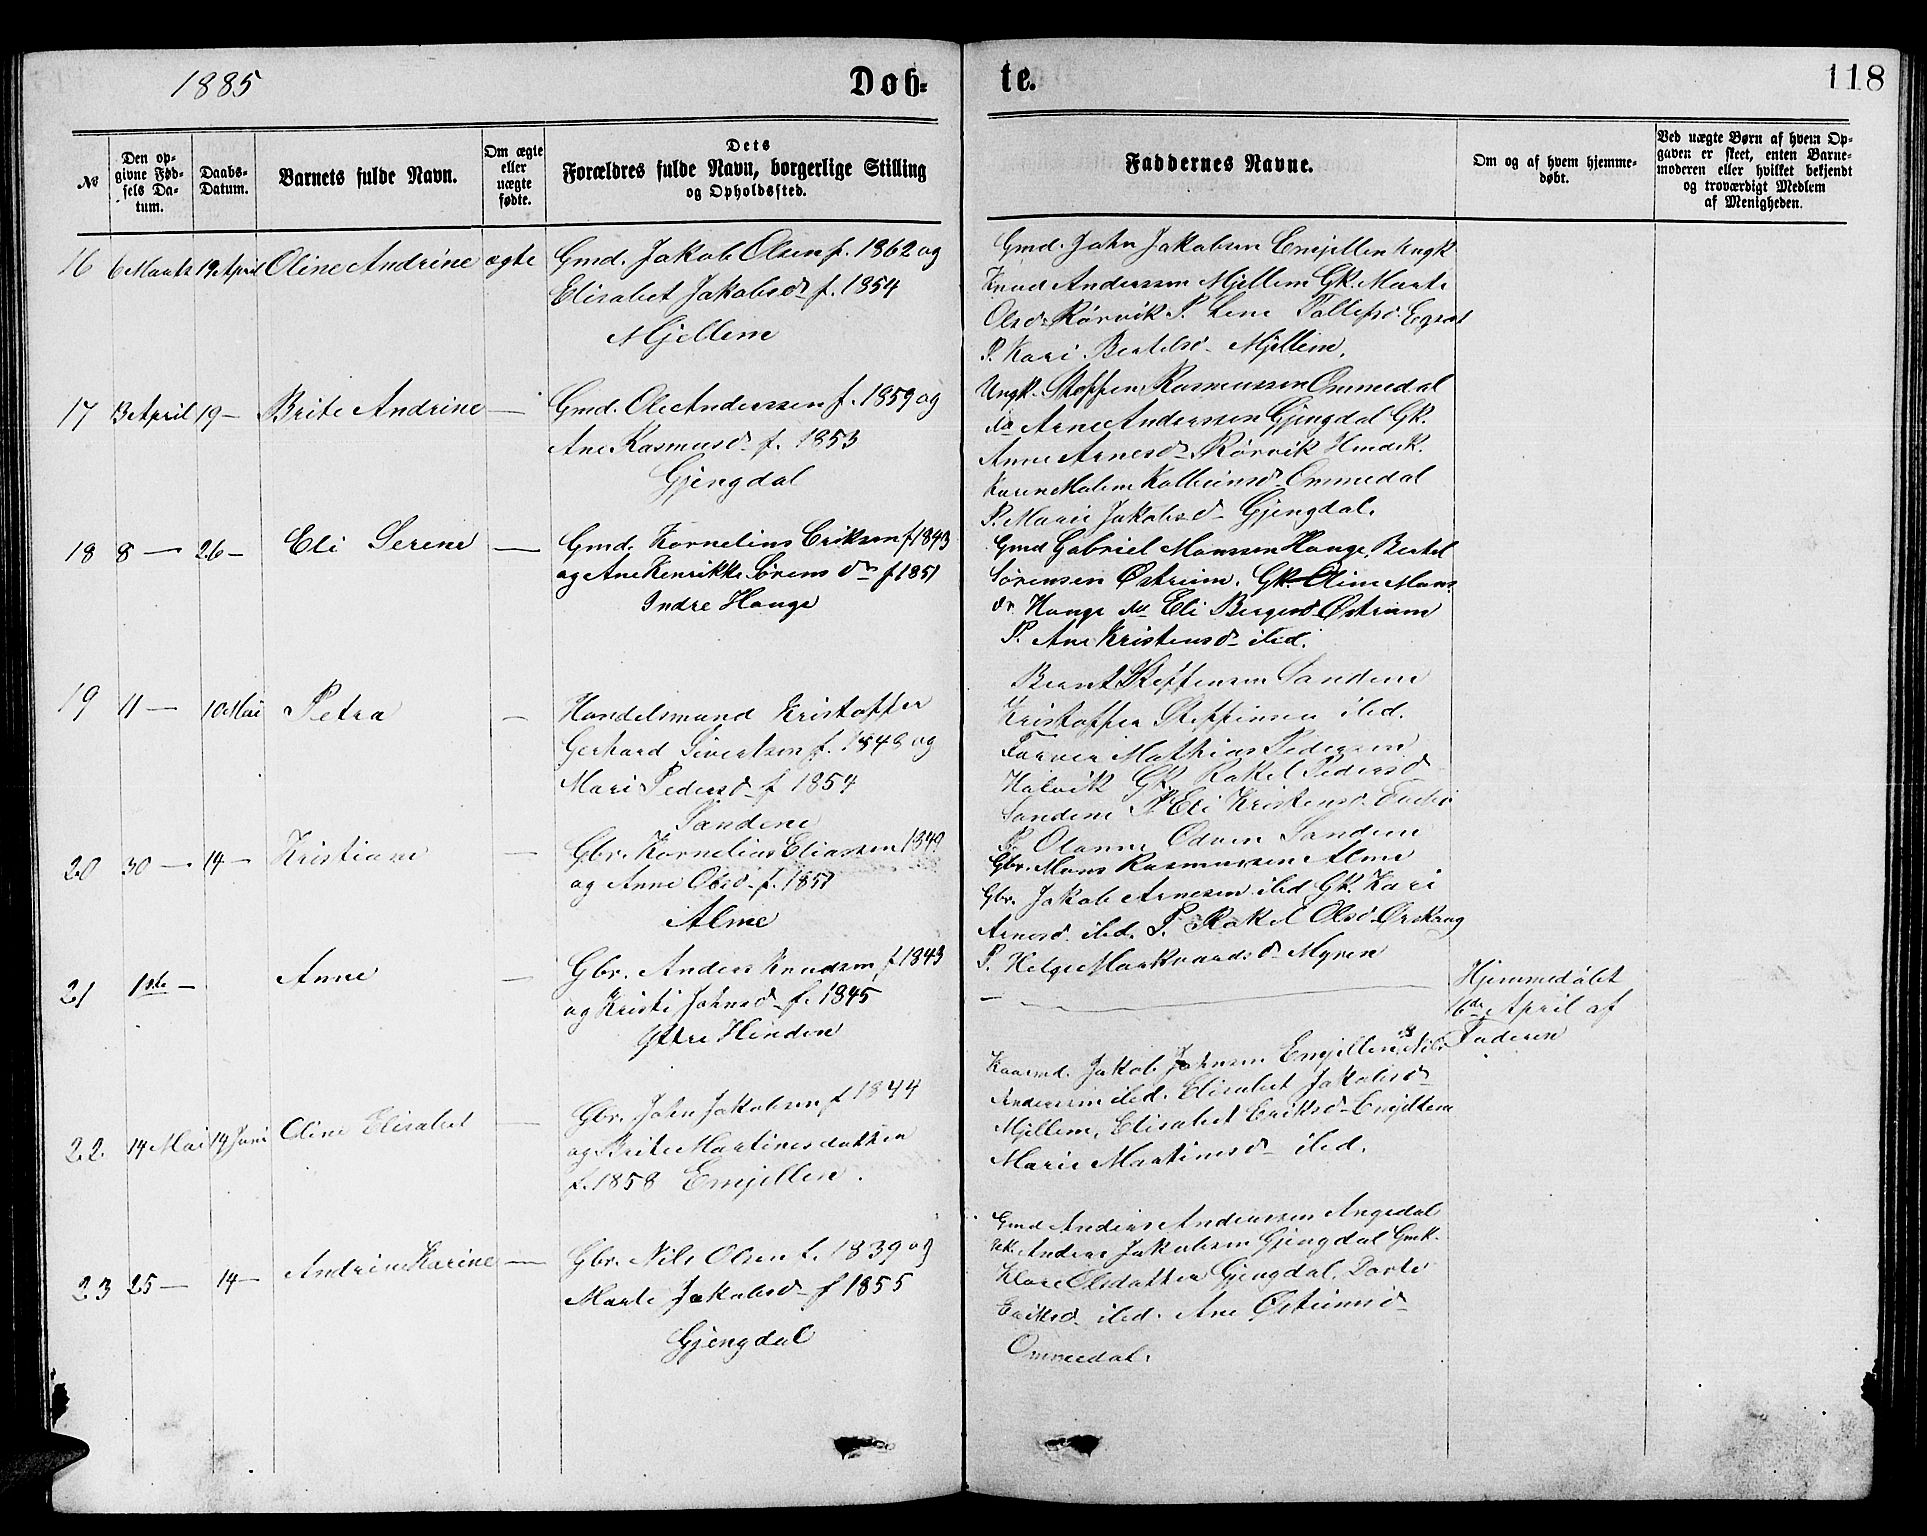 1885
Døb-
te.
118
№
Den op-
givne Fød-
sels Da-
tum.
Daabs-
Datum.
Barnets fulde Navn.
Om ægte
eller
uægte
fødte.
Dets
Forældres fulde Navn, borgerlige Stilling
og Opholdssted.
Faddernes Navne.
Om og af hvem hjemme-
døbt.
Ved uægte Børn af hvem Op-
gaven er skeet, enten Barne-
moderen eller hvilket bekjendt
og troværdigt Medlem
af Menigheden.
16 6 Marts 19 April Oline Andrine ægte Gmd. Jakob Olsen f. 1862 og
Elisabet Jakobsd f. 1854
Mjellem
Gmd. John Jakobsen Emjellen Ungk
Knud Anderssen Mjellem Gk. Marte
Olsd Rørvik P. Lene Tollefsd
P. Kari Bertelsd Mjellem.
17 13 April 19 — Brite Andrine — Gmd. Ole Anderssen f. 1859 og
Ane Rasmusd f. 1853
Gjengdal
Ungk. Steffen Rasmussen Ommedal
do Arne Anderssen Gjengdal Gk.
Anne Arnesd Rørvik
Karen Malene Ommedal
P. Marie Jakobsd Gjengdal.
18 8 — 26 — Eli Serine — Gmd. Kornelius Eriksen f 1843
og Ane Henrikke Sørensdr f 1851
Indre Hauge
Gmd Gabriel Monssen Hauge, Bertel
Sørensen Østreim. Gk. Oline Mons
dr Hauge do Eli Østreim
P. Ane Kristensd ibd.
19 11 — 10 Mai Petra — Handelsmand Kristoffer
Gerhard Sivertsen f. 1848 og
Mari Pedersd f 1854
Sandene
Bernt Steffensen Sandene
Kristoffer Steffensen ibd.
Farver Mathias Pedersen
Holvik Gk Rakel Pedersd
Sandene P Eli Kristensd
P. Olanne Sandene
20 30 — 14 — Kristiane — Gbr. Kornelius Eliassen 1849
og Anne Olsd f. 1851
Alme
Gbr. Mons Rasmussen Alme
Gbr. Jakob Arnesen ibd Gk. Kari
Arnesd ibd. P. Rakel Olsd Ørskaug
P. Helge Markvardsd Myren
21 1ste — Anne — Gbr. Anders Knudsen f 1843
og Kristi Johnsd f. 1845
Yttre Hinden
Hjemmedøbt
6de April af
Faderen
22 14 Mai 14 Juni Oline Elisabet — Gbr. John Jakobsen f 1844
og Brite Martinesdatter
f. 1858 Emjellen.
Kaarmd. Jakob Johnsen Emjellen, Nils
Anderssen ibd. Elisabet Jakobsd
Mjellem, Elisabet Eriksd Emjellem
Marie Martinusd ibd.
23 25 — 14 — Andrine Karine — Gbr. Nils Olsen f. 1839 og
Marte Jakobsd f 1855
Gjengdal
Gmd Anders Anderssen Angedal
Uk. Anders Jakobsen Gjengdal Gmk.
Olsdatter Gjengdal, Dorte
Eriksd ibd. Ane
Ommedal.